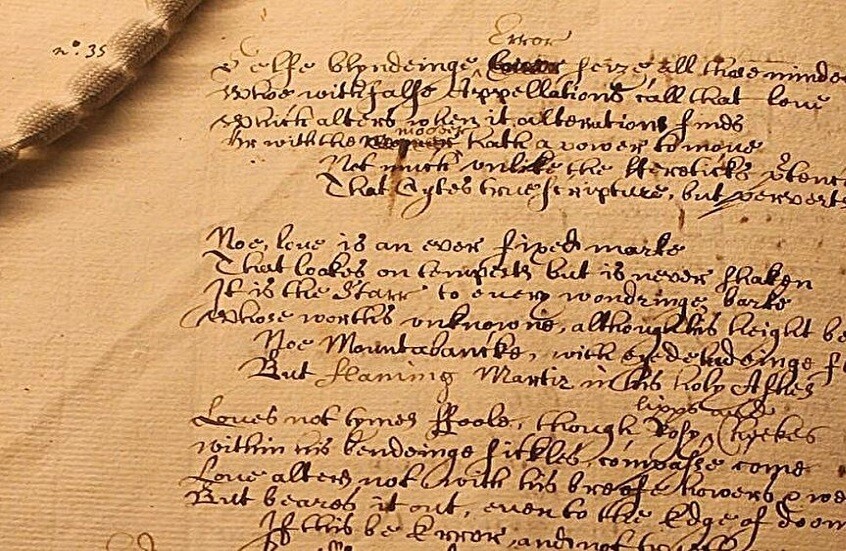 no: 35
Error
Selfe blyndeinge seize all those minds
Whoe with false Appellations call that love
Which alters when it alterations finds
Or with the moover hath a power to move
Not much unlike the Hereticks
That Cytes true scripture, but perverts
Noe, love is an ever fixed marke
That lookes on tempests but is never shaken
It is the Starr to every wondringe barke
Whose worths unknowne, although his height be
Noe Mountabancke, with eyedeludeinge
But flaming Martir in his holy Ashes
lipps and
Loves not tymes Foole, though Rosy Cheekes
within his bendeinge sickles compasse come
Love alters not with his breefe howers & we
But beares it out, even to the Edge of doom
If this be Error, and not